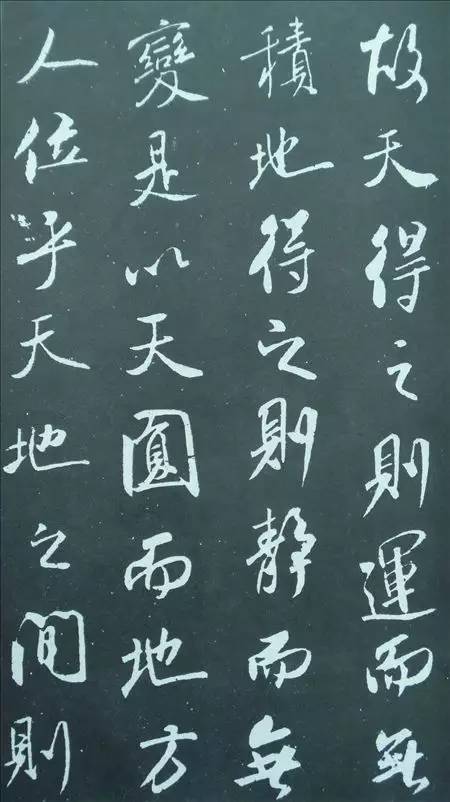 故天得之則運而無
積地得之則靜而無
變是以天圓而地方
人位乎天地之間則